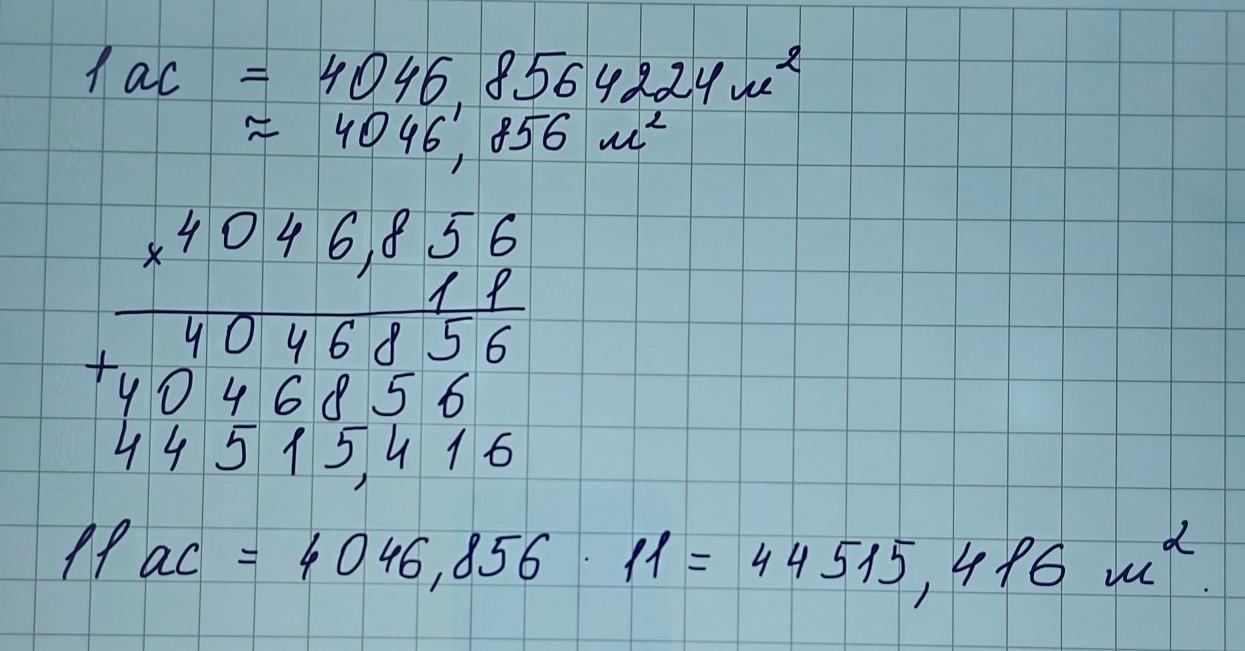 1 ac = 4046,8564224 м²
≈ 4046,856 м²
× 4046,856
11
4046856
+ 4046856
44515,416
11 ac = 4046,856 · 11 = 44515,416 м².